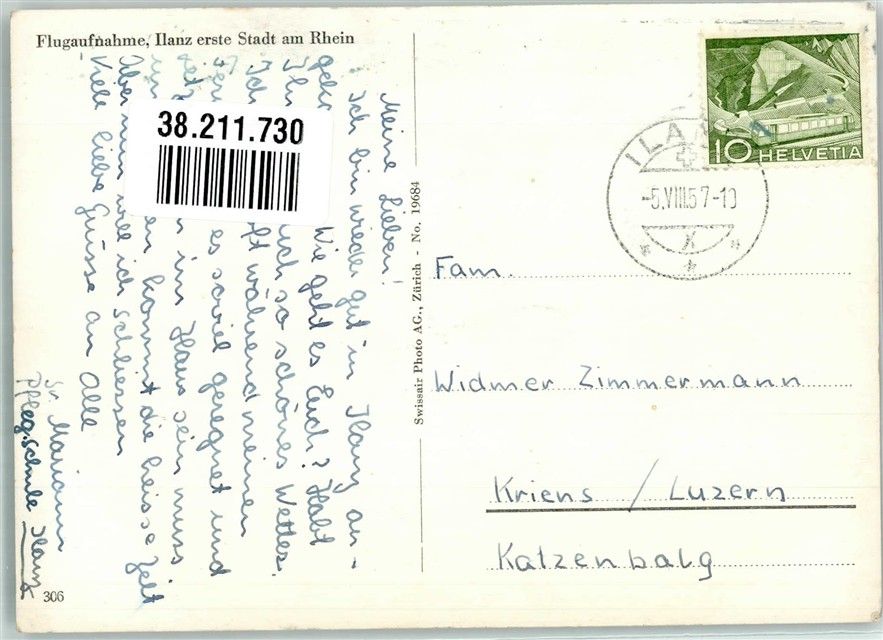 Flugaufnahme, Ilanz erste Stadt am Rhein
Meine Lieben!
Ich bin wieder gut in Ilanz an-
Wie geht es Euch? Habt
so schönes Wetter.
während meinen
es soviel geregnet und
im Haus sein muss
kommt die heisse Zeit
Aber nun will ich schliessen
Viele liebe Grüsse an Alle
Sr. Mariann
Pfleg. Schule Ilanz
306
38.211.730
Swissair Photo AG., Zürich - No. 19684
ILANZ
-5.VIII.57-10
X
10 HELVETIA
Fam.
Widmer Zimmermann
Kriens / Luzern
Katzenbalg